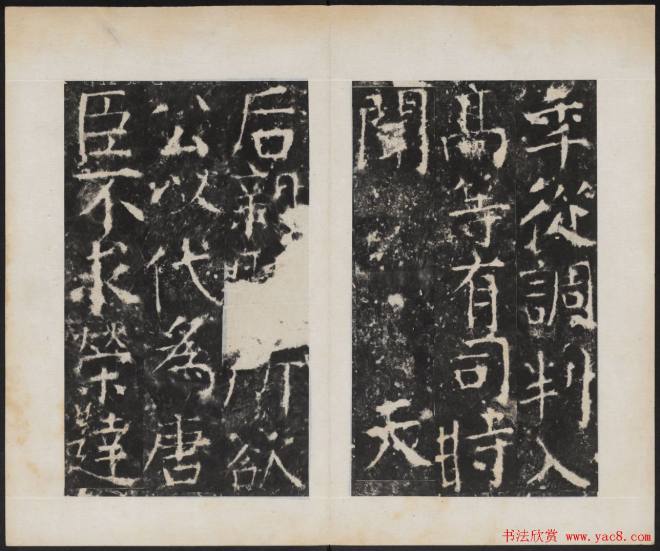 年從調判入
高等有司時
聞 天
后親 所欲
公以代為唐
臣不求榮達
书法欣赏 www.yac8.com